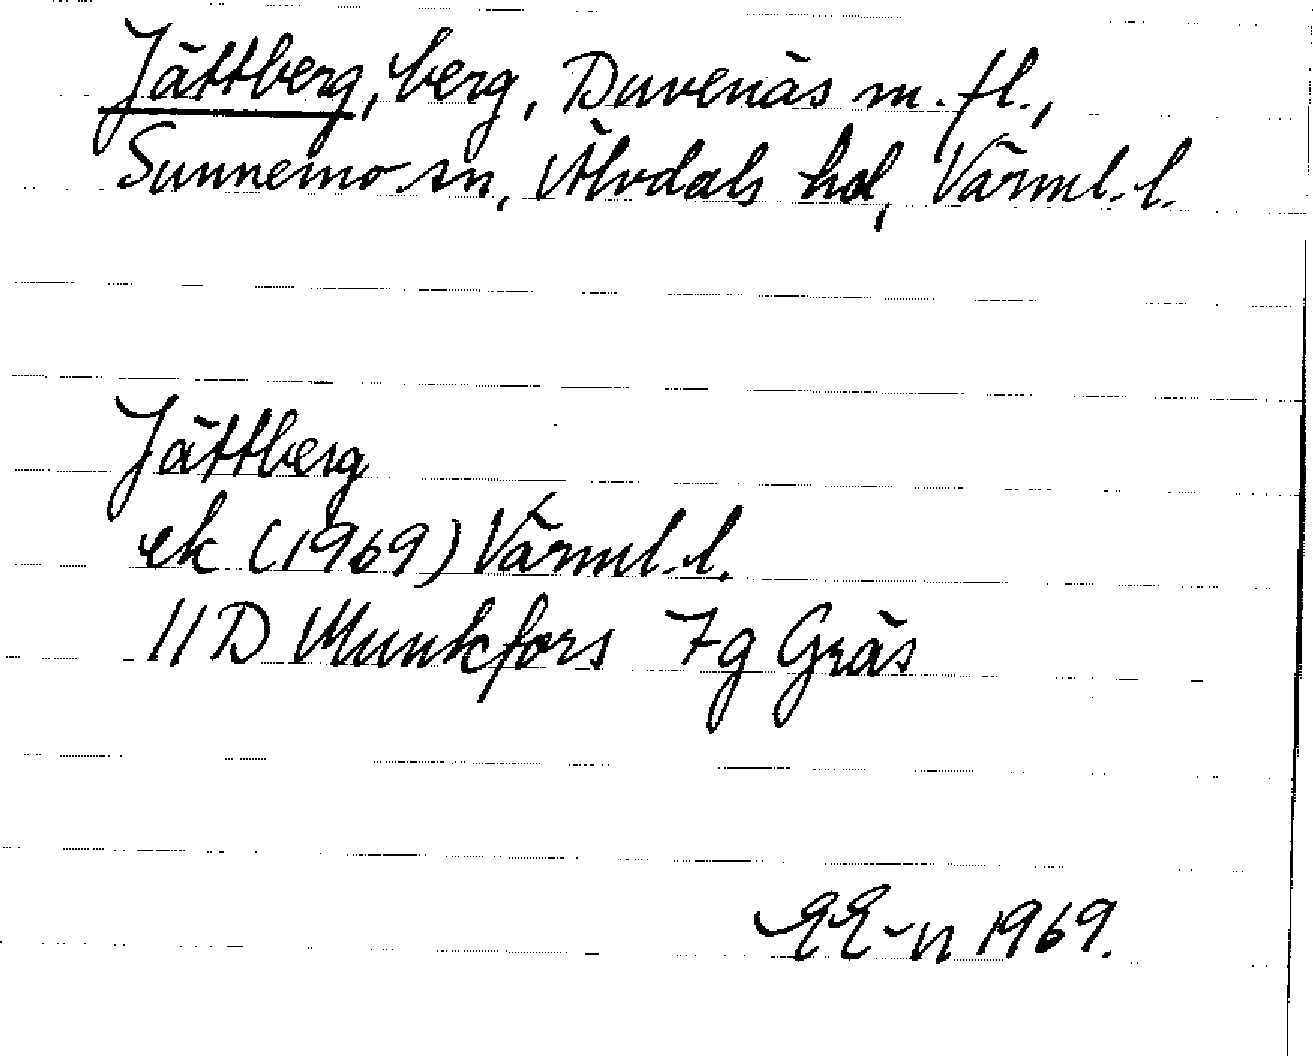 Jättberg, berg, Duvenäs m. fl.,
Sunnemo sn, Älvdals hd, Värml. l.
Jättberg
ek (1969) Värml. l.
11D Munkfors 7g Gräs
EE-n 1969.